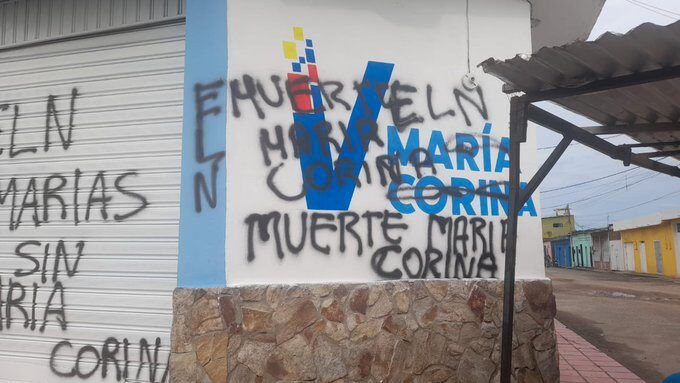 ELN
MARIAS
SIN
ARIA
CORINA
ELN
MUERTE ELN
MARIA
CORINA
V
MARÍA
CORINA
MUERTE MARIA
CORINA